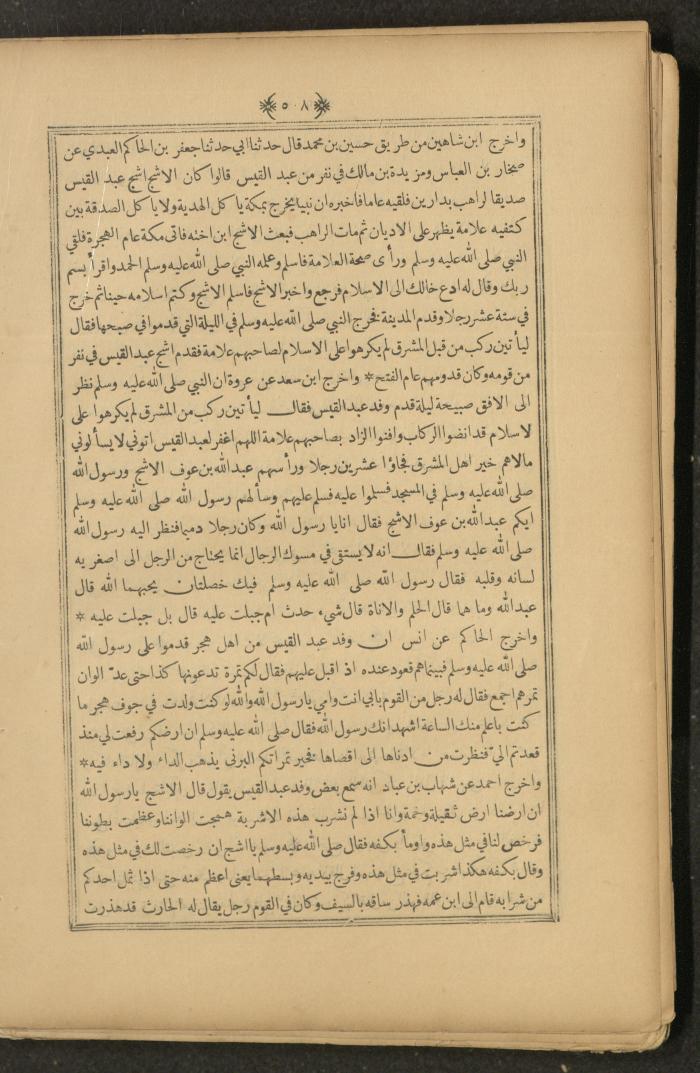 ٥٠٨
واخرج ابن شاهين من طريق حسين بن محمد قال حدثنا ابي حدثنا جعفر بن الحاكم العبدي عن
صحار بن العباس ومزيدة بن مالك في نفر من عبد القيس قالوا كان الاشج اشج عبد القيس
صديقا لراهب بدارين فلقيه عاما فاخبره ان نبيا يخرج بمكة ياكل الهدية ولا ياكل الصدقة بين
كتفيه علامة يظهر على الاديان ثم مات الراهب فبعث الاشج ابن اخته فاتى مكة عام الهجرة فلقي
النبي صلى الله عليه وسلم ورأى صحة العلامة فاسلم وعلمه النبي صلى الله عليه وسلم الحمد واقرأ بسم
ربك وقال له ادع خالك الى الاسلام فرجع واخبر الاشج فاسلم الاشج وكتم اسلامه حينا ثم خرج
في ستة عشر رجلا وقدم المدينة فخرج النبي صلى الله عليه وسلم في الليلة التي قدموا في صبحها فقال
ليأتين ركب من قبل المشرق لم يكرهوا على الاسلام لصاحبهم علامة فقدم اشج عبد القيس في نفر
من قومه وكان قدومهم عام الفتح* واخرج ابن سعد عن عروة ان النبي صلى الله عليه وسلم نظر
الى الافق صبيحة ليلة قدم وفد عبد القيس فقال ليأتين ركب من المشرق لم يكرهوا على
لاسلام قد انضوا الركاب وافنوا الزاد بصاحبهم علامة اللهم اغفر لعبد القيس اتوني لا يسألوني
مالاهم خير اهل المشرق فجاؤا عشرين رجلا ورأسهم عبد الله بن عوف الاشج ورسول الله
صلى الله عليه وسلم في المسجد فسلموا عليه فسلم عليهم وسألهم رسول الله صلى الله عليه وسلم
ايكم عبد الله بن عوف الاشج فقال انا يا رسول الله وكان رجلا دميما فنظر اليه رسول الله
صلى الله عليه وسلم فقال انه لا يستقى في مسوك الرجال انما يحتاج من الرجل الى اصغريه
لسانه وقلبه فقال رسول الله صلى الله عليه وسلم فيك خصلتان يحبهما الله قال
عبد الله وما هما قال الحلم والاناة قال شيء حدث ام جبلت عليه قال بل جبلت عليه *
واخرج الحاكم عن انس ان وفد عبد القيس من اهل هجر قدموا على رسول الله
صلى الله عليه وسلم فبينما هم قعود عنده اذ اقبل عليهم فقال لكم تمرة تدعونها كذا حتى عد الوان
تمرهم اجمع فقال له رجل من القوم بابي انت وامي يا رسول الله والله لو كنت ولدت في جوف هجر ما
كنت باعلم منك الساعة اشهد انك رسول الله فقال صلى الله عليه وسلم ان ارضكم رفعت لي منذ
قعدتم الي فنظرت من ادناها الى اقصاها فخير تمراتكم البرني يذهب الداء ولا داء فيه*
واخرج احمد عن شهاب بن عباد انه سمع بعض وفد عبد القيس يقول قال الاشج يا رسول الله
ان ارضنا ارض ثقيلة وخمة وانا اذا لم نشرب هذه الاشربة هيجت الواننا وعظمت بطوننا
فرخص لنا في مثل هذه واومأ بكفه فقال صلى الله عليه وسلم يا اشج ان رخصت لك في مثل هذه
وقال بكفه هكذا شربت في مثل هذه وفرج بيديه وبسطهما يعني اعظم منه حتى اذا ثمل احدكم
من شرابه قام الى ابن عمه فهذر ساقه بالسيف وكان في القوم رجل يقال له الحارث قد هذرت